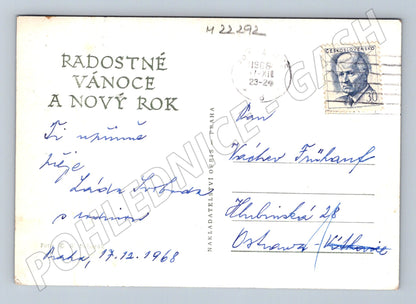 M 22.292
RADOSTNÉ
VÁNOCE
A NOVÝ ROK
Ti upřímně
přeje
Láďa Svoboda
s rodinou
Praha, 17.12.1968
NAKLADATELSTVÍ ORBIS, PRAHA
1968
XII
23-24
ČESKOSLOVENSKO
30
Pan
Václav Frühauf
Hlubinská 28
Ostrava - Vítkovice
POHLEDNICE - GASH